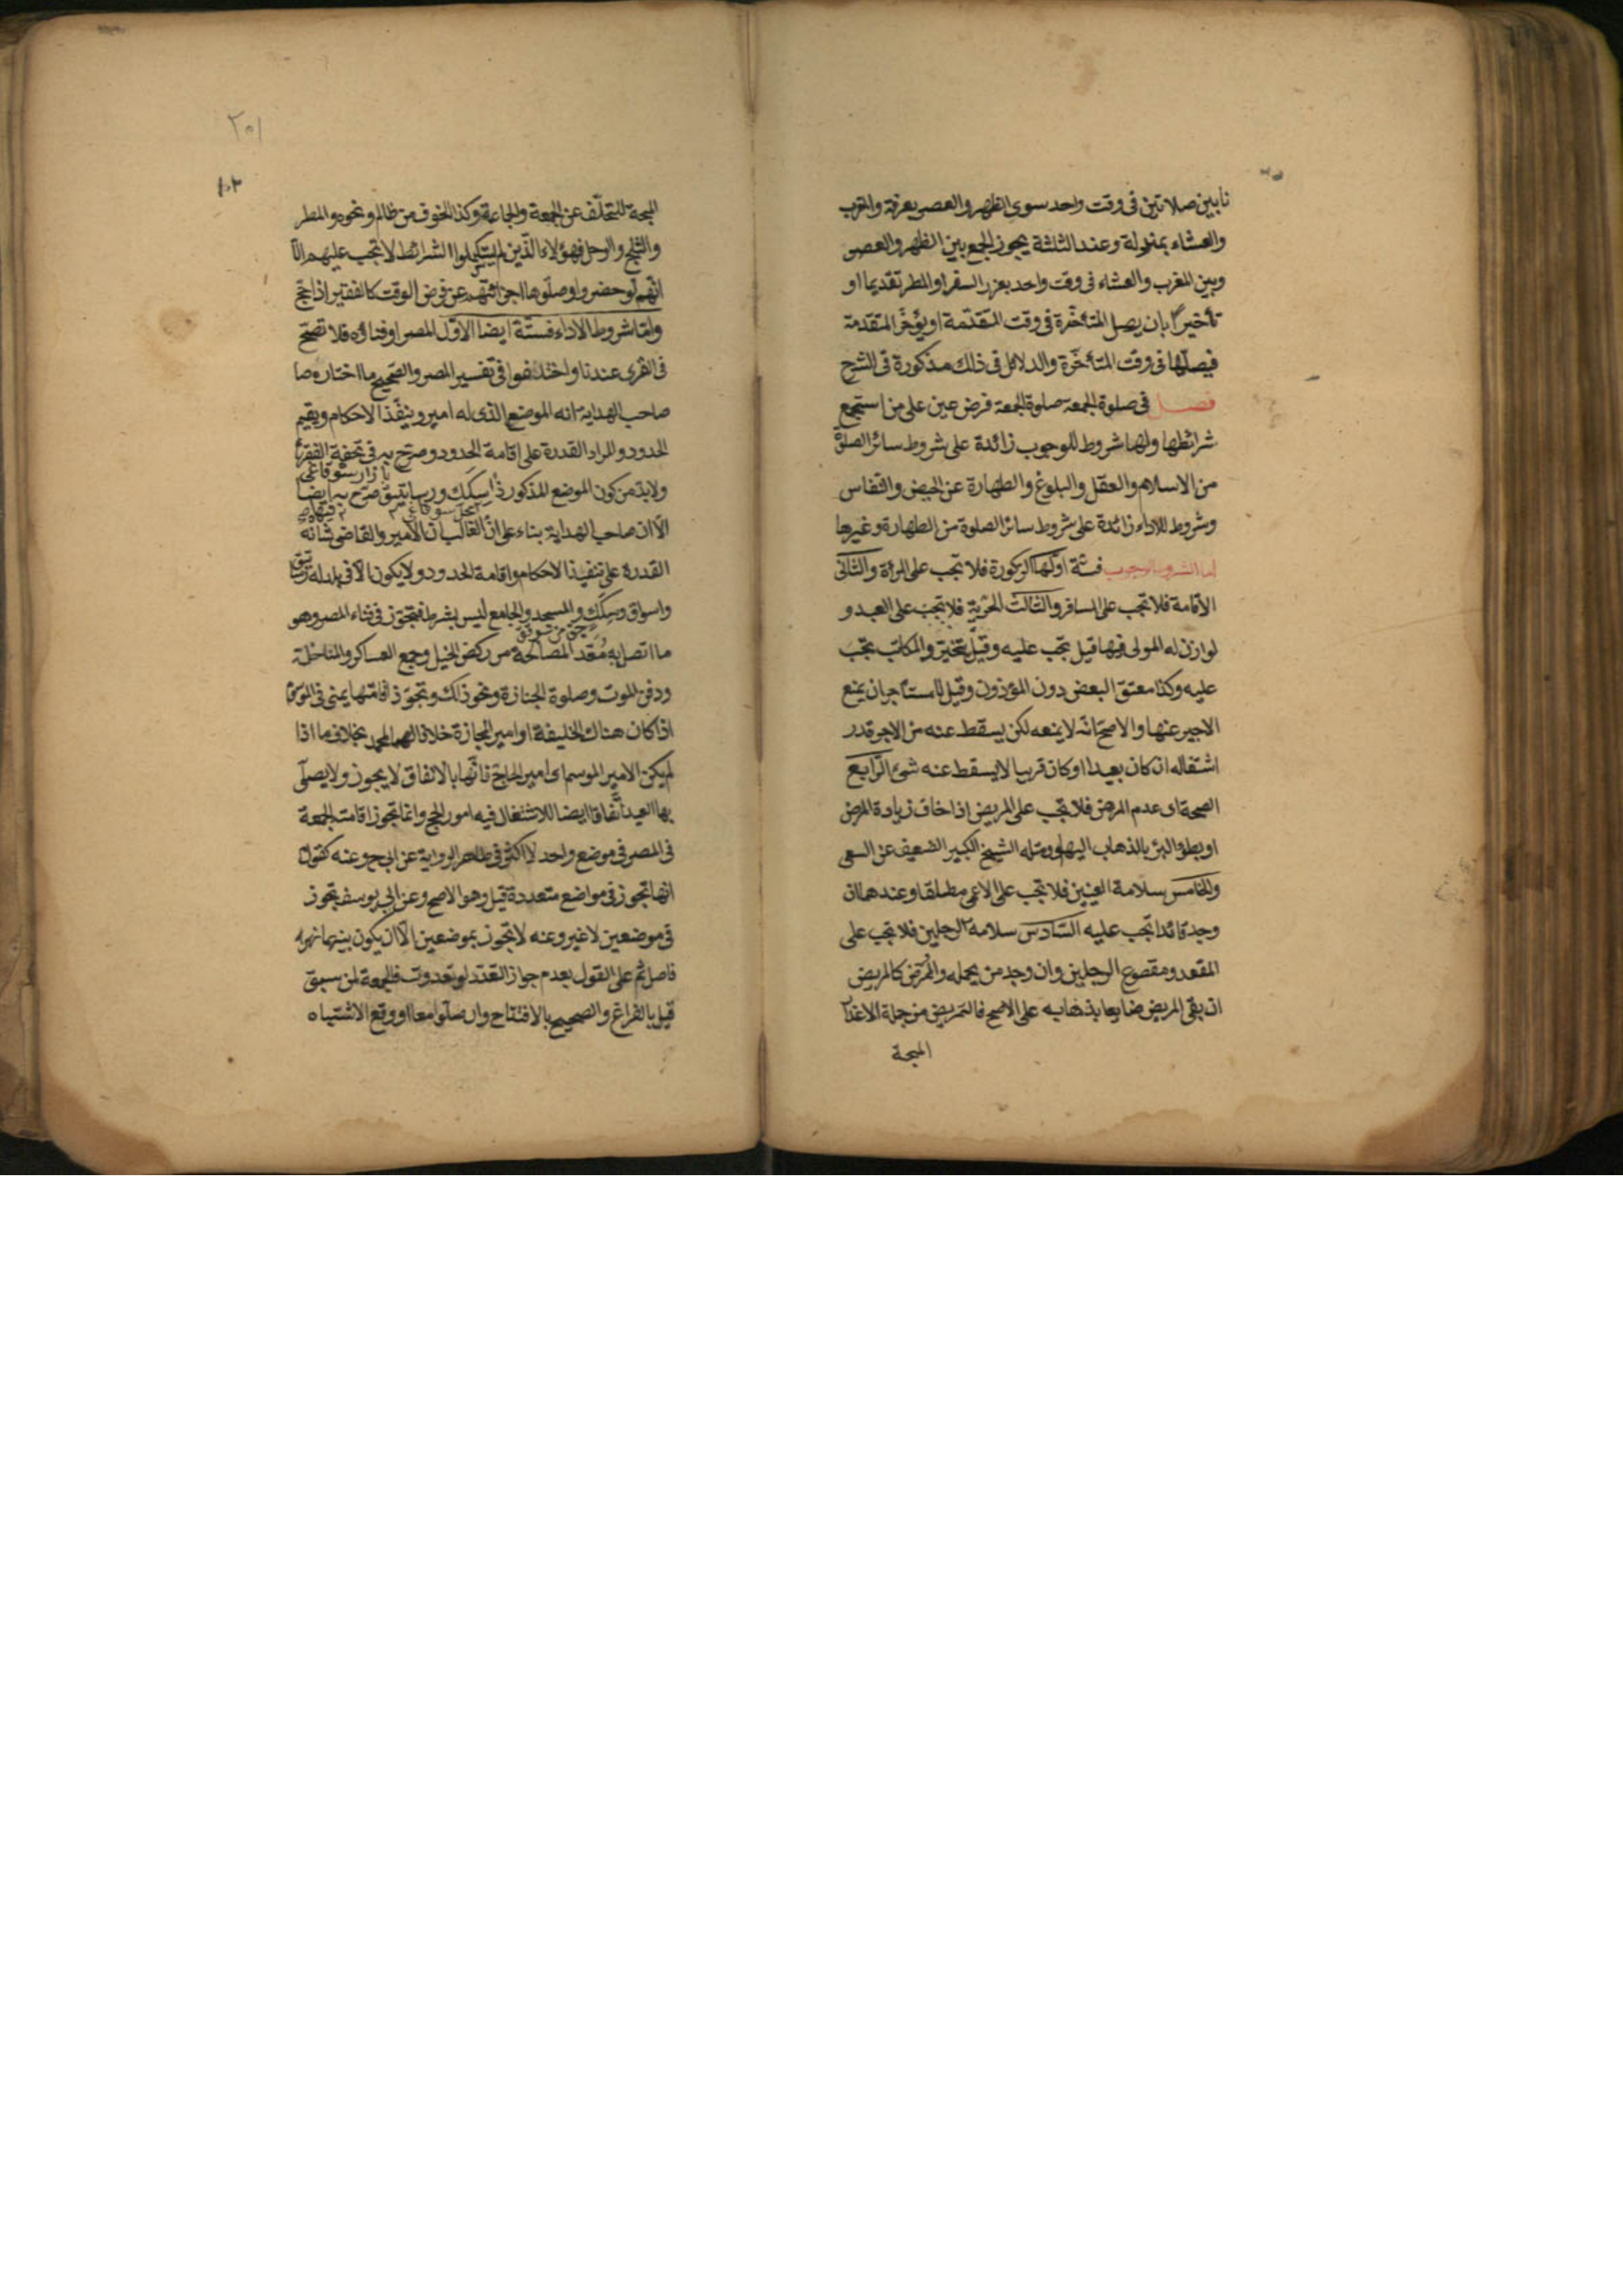 نا بين صلاتين فى وقت واحد سوى الظهر والعصر بعرفة والمغرب
والعشاء بمزدلفة وعند الثلثة يجوز الجمع بين الظهر والعصر
وبين المغرب والعشاء فى وقت واحد بعزر السفر او المطر تقديما او
تأخيرا بان يصل المتأخرة فى وقت المتقدمة او يؤخر المتقدمة
فيصلها فى وقت المتأخرة والدلائل فى ذلك مذكورة فى الشرح
فصل فى صلوة الجمعة صلوة الجمعة فرض عين على من استجمع
شرائطها ولها شروط للوجوب زائدة على شروط سائر الصلوة
من الاسلام والعقل والبلوغ والطهارة عن الحيض والنفاس
وشروط للاداء زائدة على شروط سائر الصلوة من الطهارة وغيرها
اما الشروط الوجوب فستة اولها الزكورة فلا تجب على المرأة والثانى
الاقامة فلا تجب على المسافر والثالث الحرية فلا تجب على العبد و
لو ازن له المولى فيها قيل تجب عليه وقيل تخير والمكاتب تجب
عليه وكذا معتق البعض دون المؤزون وقيل للمستأجر ان يمنع
الاجير عنها والاصح انه لا يمنعه لكن يسقط عنه من الاجر قدر
اشتغاله ان كان بعيدا او كان قريبا لا يسقط عنه شئ الرابع
الصحة اى عدم المرض فلا تجب على المريض اذا خاف زيادة المرض
او بطؤ البرؤ بالذهاب اليها ومثله الشيخ الكبير الضعيف عن السعى
والخامس سلامة العينين فلا تجب على الاعمى مطلقا وعندهما ان
وجد قائدا تجب عليه السادس سلامة الرجلين فلا تجب على
المقعد ومقصوع الرجلين وان وجد من يحمله والممرض كالمريض
ان بقى المريض ضايعا بذهابه على الاصح فالتمريض من جملة الاعذار
المبحة
٢٠١
١٠٢
المبحة للتخلف عن الجمعة والجماعة وكذا الخوف من ظالم ونحوه والمطر
والثلج والوحل فهؤلاء الذين لم يستكملوا الشرائط لا تجب عليهم الا
انهم لو حضروا وصلوها اجزائتهم عن فرض الوقت كالفقير اذا حج
واما شروط الاداء فستة ايضا الاول المصر او فناؤه فلا تصح
فى القرى عندنا واختلفوا فى تفسير المصر والصحيح ما اختاره صا
صاحب الهداية انه الموضع الذى له امير وينفذ الاحكام ويقيم
الحدود والمراد القدرة على اقامة الحدود وصرح به فى تحفة الفقهاء
ولا بد من كون الموضع المذكور ذا سكك ورساتيق صرح به ايضا
الا ان صاحب الهداية بناء على ان الغالب ان الامير والقاضى شانه
القدرة على تنفيذ الاحكام واقامة الحدود ولا يكون الا فى بلد له رساتيق
واسواق وسكك والمسجد والجامع ليس بشرط فتجوز فى فناء المصر وهو
ما اتصل به معد المصالحة من ركض الخيل وجمع العساكر والمناضلة
ودفن الموت وصلوة الجنازة ونحو ذلك وتجوز اقامتها بمنى فى الموسم
اذا كان هناك الخليفة او امير الحجازة خلافا لمحمد بخلاف ما اذا
لم يكن الامير الموسم اى امير الحاج فانها بالاتفاق لا يجوز ولا يصلى
بها العيد اتفاقا ايضا للاشتغال فيه امور الحج وانما تجوز اقامته الجمعة
فى المصر فى موضع واحد لا اكثر فى ظاهر الرواية عن ابى ح وعنه كقول
انها تجوز فى مواضع متعددة قيل وهو الاصح وعن ابى يوسف تجوز
فى موضعين لا غير وعنه لا تجوز بموضعين الا ان يكون بينهما نهر
فاصل ثم على القول بعدم جواز التعدد لو تعددت فالجمعة لمن سبق
قيل بالفراغ والصحيح بالافتتاح وان صلوا معا او وقع الاشتباه